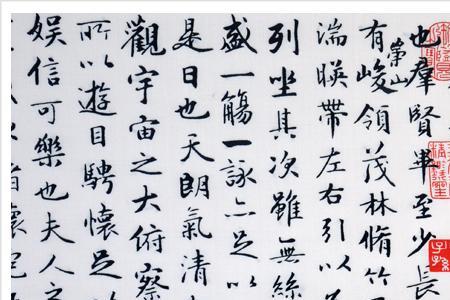 也羣賢畢至少長
有崇山峻領茂林脩竹
湍暎帶左右引以為
列坐其次雖無絲
盛一觴一詠亦足以
是日也天朗氣清
觀宇宙之大俯察
所以遊目騁懷足以
娛信可樂也夫人之